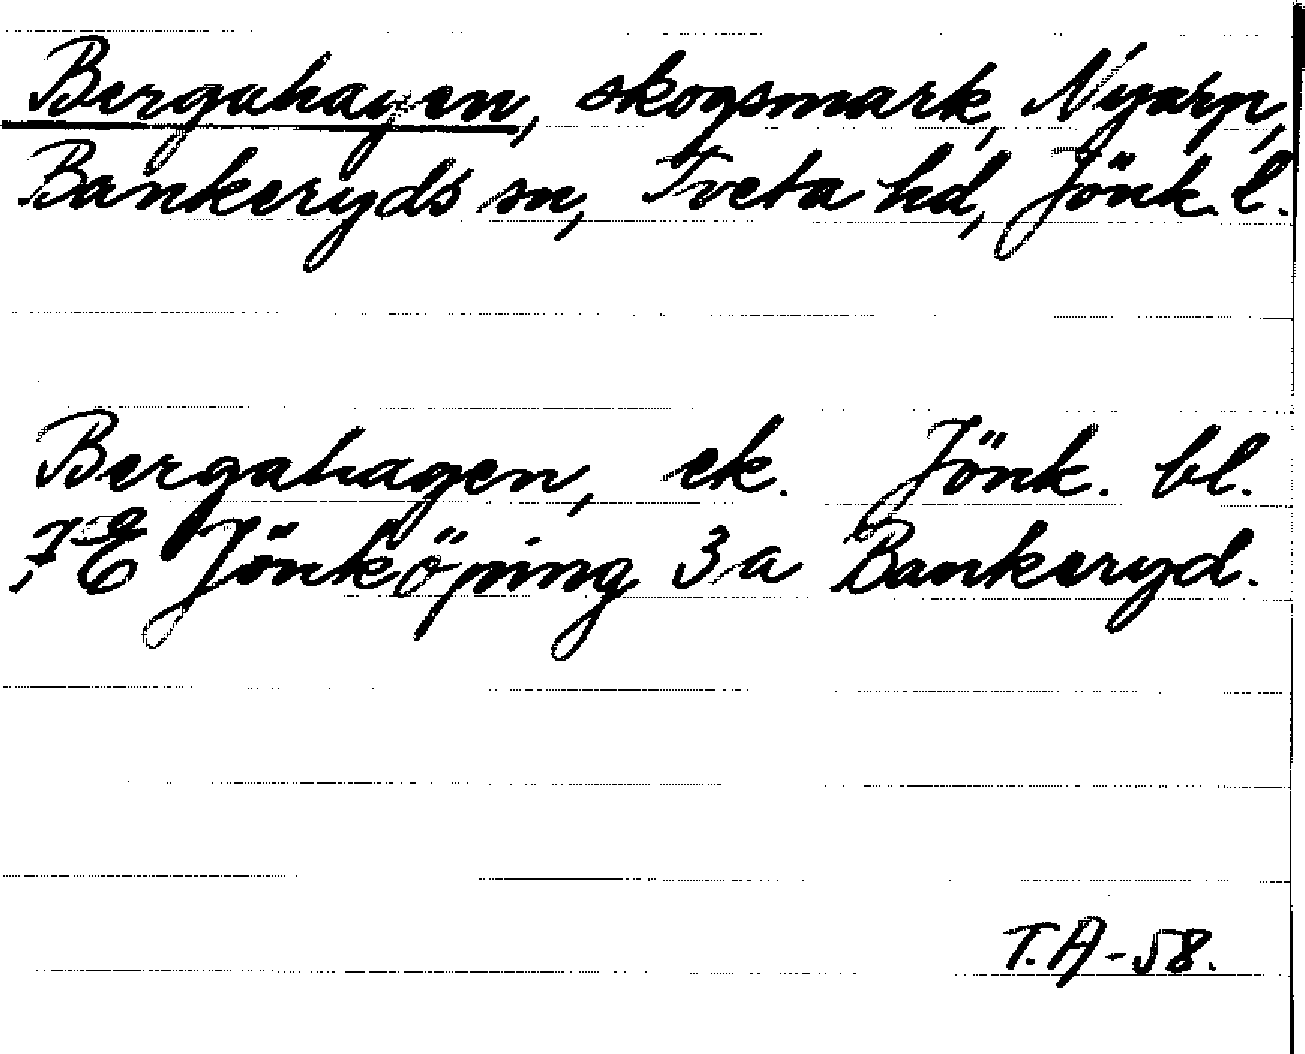 Bergahagen, skogsmark, Nyarp,
Bankeryds sn, Tveta hd, Jönk. l.
Bergahagen, ek. Jönk. bl.
7E Jönköping 3a Bankeryd.
T.A-58.